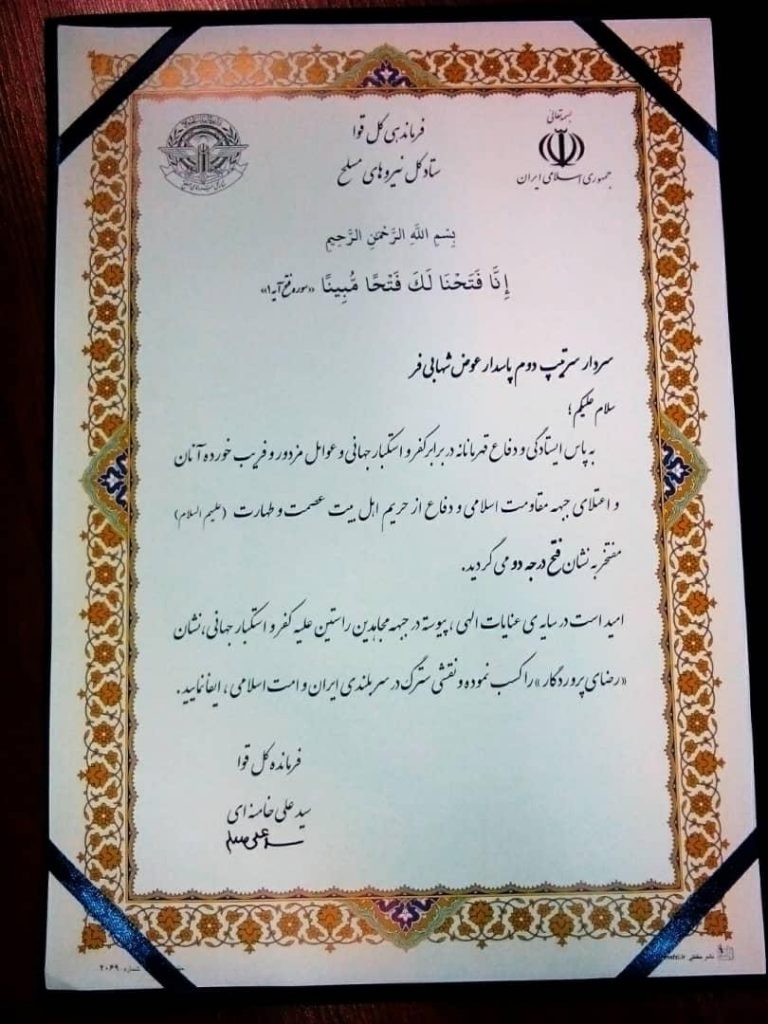 بسمه تعالی
جمهوری اسلامی ایران
فرماندهی کل قوا
ستاد کل نیروهای مسلح
بِسْمِ اللَّهِ الرَّحْمٰنِ الرَّحِیمِ
إِنَّا فَتَحْنَا لَكَ فَتْحًا مُّبِینًا «سوره فتح آیه ۱»
سردار سرتیپ دوم پاسدار عوض شهابی فر
سلام علیکم؛
به پاس ایستادگی و دفاع قهرمانانه در برابر کفر و استکبار جهانی و عوامل مزدور و فریب خورده آنان
و اعتلای جبهه مقاومت اسلامی و دفاع از حریم اهل بیت عصمت و طهارت (علیهم السلام)
مفتخر به نشان فتح درجه دو می گردید.
امید است در سایه ی عنایات الهی، پیوسته در جبهه مجاهدین راستین علیه کفر و استکبار جهانی، نشان
«رضای پروردگار» را کسب نموده و نقشی سترگ در سربلندی ایران و امت اسلامی، ایفا نمایید.
فرمانده کل قوا
سید علی خامنه ای
شماره ۲۰۶۹